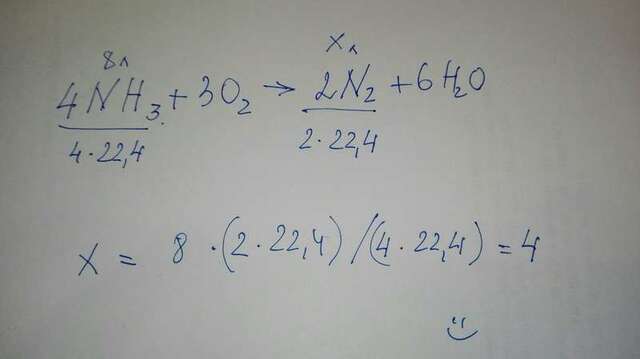 8л xл
4NH₃ + 3O₂ → 2N₂ + 6H₂O
4·22,4 2·22,4
x = 8 ·(2·22,4)/(4·22,4) = 4